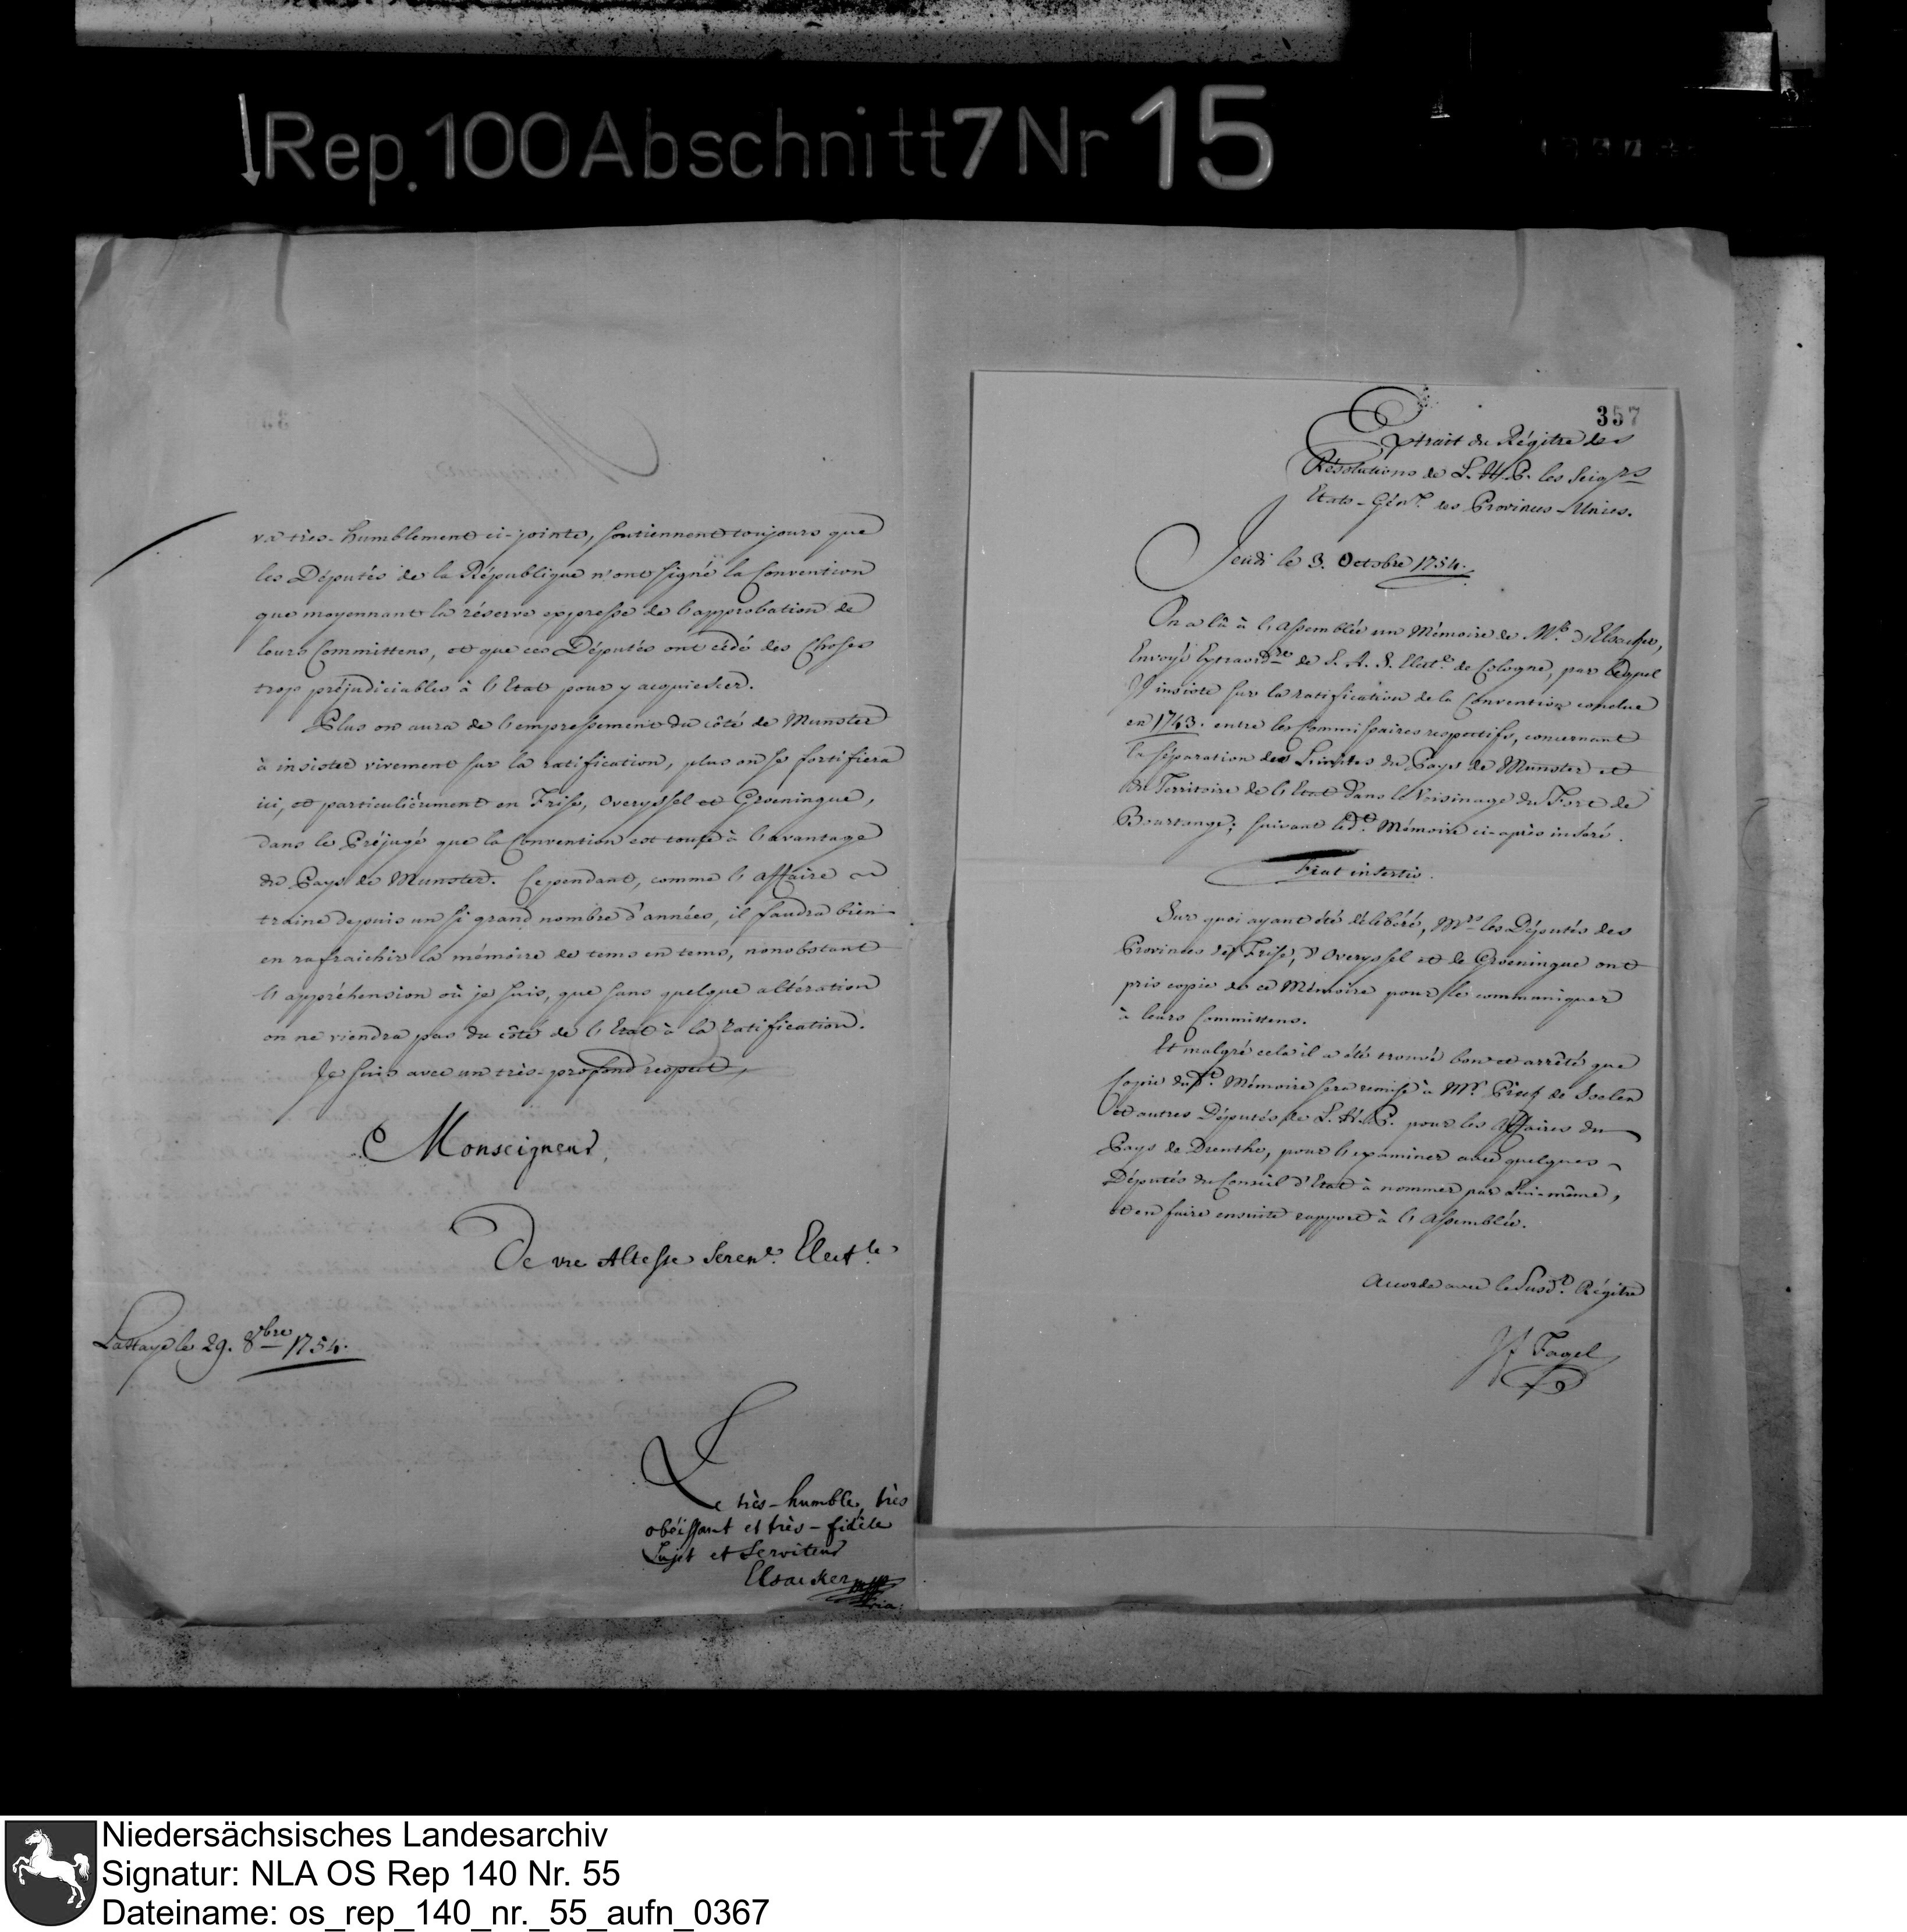 Rep. 100 Abschnitt 7 Nr 15
va très-humblement ci-jointe, soutiennent toujours que
les Députés de la République n'ont signé la Convention
que moyennant la réserve expresse de l'approbation de
leurs Committens, et que ces Députés ont cédé des Choses
trop préjudiciables à l'Etat pour y acquiescer.
Plus on aura de l'empressement du côté de Munster
à insister vivement sur la ratification, plus on se fortifiera
ici, et particuliérement en Frise, Overyssel et Groeningue,
dans le Préjugé que la Convention est toute à l'avantage
du Pays de Munster. Cependant, comme l'Affaire
traine depuis un si grand nombre d'années, il faudra bien
en rafraichir la mémoire de tems en tems, nonobstant
l'appréhension où je suis, que sans quelque altération
on ne viendra pas du côté de l'Etat à la ratification.
Je suis avec un très-profond respect,
Monseigneur,
De vre Altesse Seren.e Elect.le
LaHaye le 29. 8bre 1754.
Le très-humble, très
obéissant et très-fidèle
Sujet et Serviteur
Elsacker
357
Extrait du Régitre des
Résolutions de L. H. P. les Seigrs
Etats-Génx. des Provinces-Unies.
Jeudi le 3. Octobre 1754.
On a lû à l'Assemblée un Mémoire de Mr. d'Elsacker,
Envoyé Extraordre de S. A. S. Elect.e de Cologne, par lequel
Il insiste sur la ratification de la Convention conclue
en 1743. entre les Commissaires respectifs, concernant
la séparation des Limites du Pays de Munster et
du Territoire de l'Etat dans le Voisinage du Fort de
Bourtange; suivant led.t Mémoire ci-après inséré.
Fiat insertio.
Sur quoi ayant été délibéré, Mrs les Députés des
Provinces de Frise, d'Overyssel et de Groeningue ont
pris copie de ce Mémoire pour le communiquer
à leurs Committens.
Et malgré cela il a été trouvé bon et arrêté que
Copie dud.t Mémoire sera remise à Mr. Pieck de Soelen
et autres Députés de L. H. P. pour les Affaires du
Pays de Drenthe, pour l'examiner avec quelques
Députés du Conseil d'Etat à nommer par Lui-même,
et en faire ensuite rapport à l'Assemblée.
Accorde avec le Susd.t Régitre
H Fagel
Niedersächsisches Landesarchiv
Signatur: NLA OS Rep 140 Nr. 55
Dateiname: os_rep_140_nr._55_aufn_0367